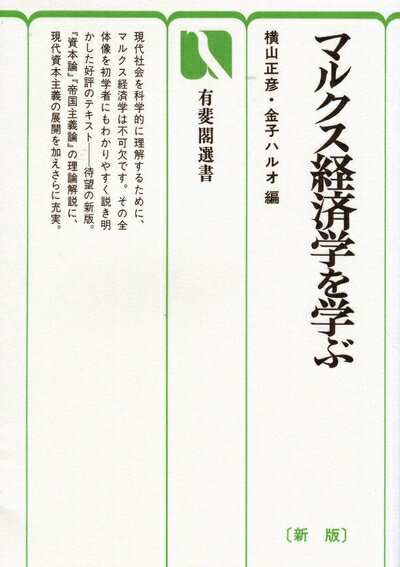 マルクス経済学を学ぶ
〔新版〕
横山正彦・金子ハルオ 編
有斐閣選書
現代社会を科学的に理解するために、
マルクス経済学は不可欠です。その全
体像を初学者にもわかりやすく説き明
かした好評のテキスト——待望の新版。
『資本論』『帝国主義論』の理論解説に、
現代資本主義の展開を加えさらに充実。